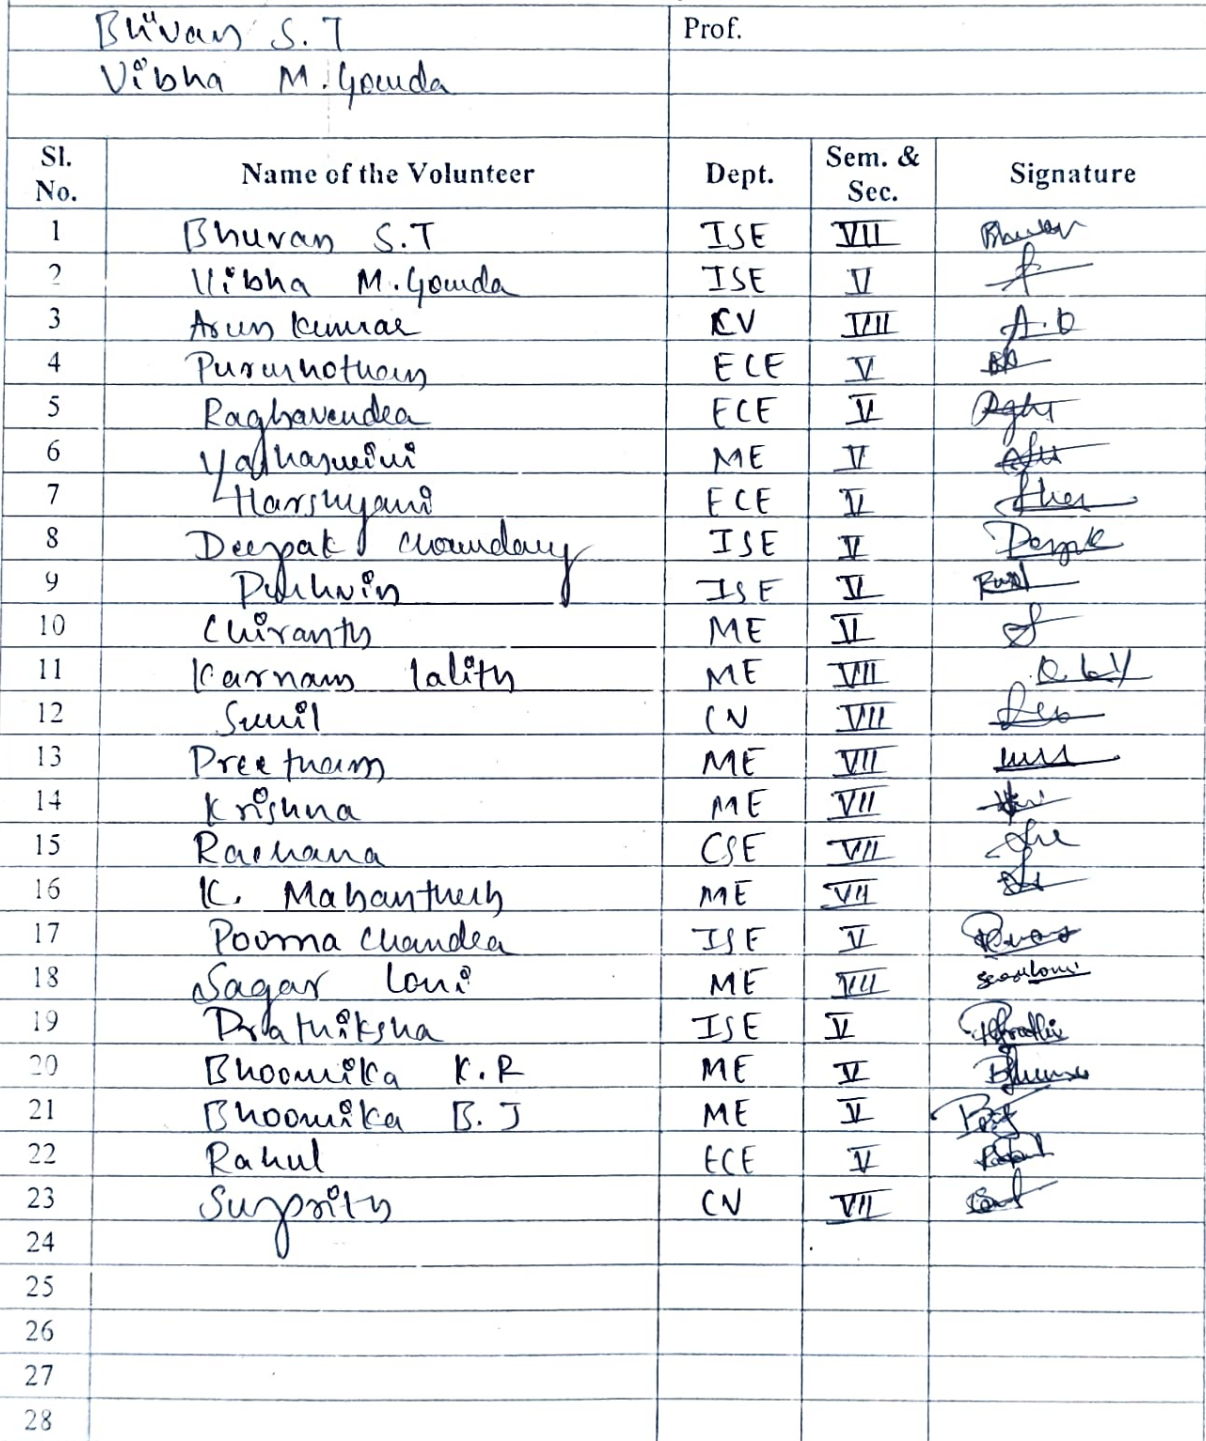 Bhuvan S.T Prof.
Vibha M.Gowda
Sl. No. Name of the Volunteer Dept. Sem. & Sec. Signature
1 Bhuvan S.T ISE VII Bhuvan
2 Vibha M.Gowda ISE V
3 Arun Kumar CV VII A.D
4 Purushotham ECE V
5 Raghavendra ECE V
6 Yashaswini ME V
7 Harshyani ECE V
8 Deepak Choundary ISE V Deepak
9 ISE V
10 Chiranth ME V
11 Karnam lalith ME VII
12 Sunil CN VII
13 Preetham ME VII
14 Krishna ME VII
15 Rachana CSE VII
16 K. Mahanthesh ME VII
17 Poorna Chandra ISE V
18 Sagar Loni ME VII
19 Prathiksha ISE V
20 Bhoomika K.R ME V
21 Bhoomika B.J ME V
22 Rahul ECE V
23 Suprith CN VII
24
25
26
27
28